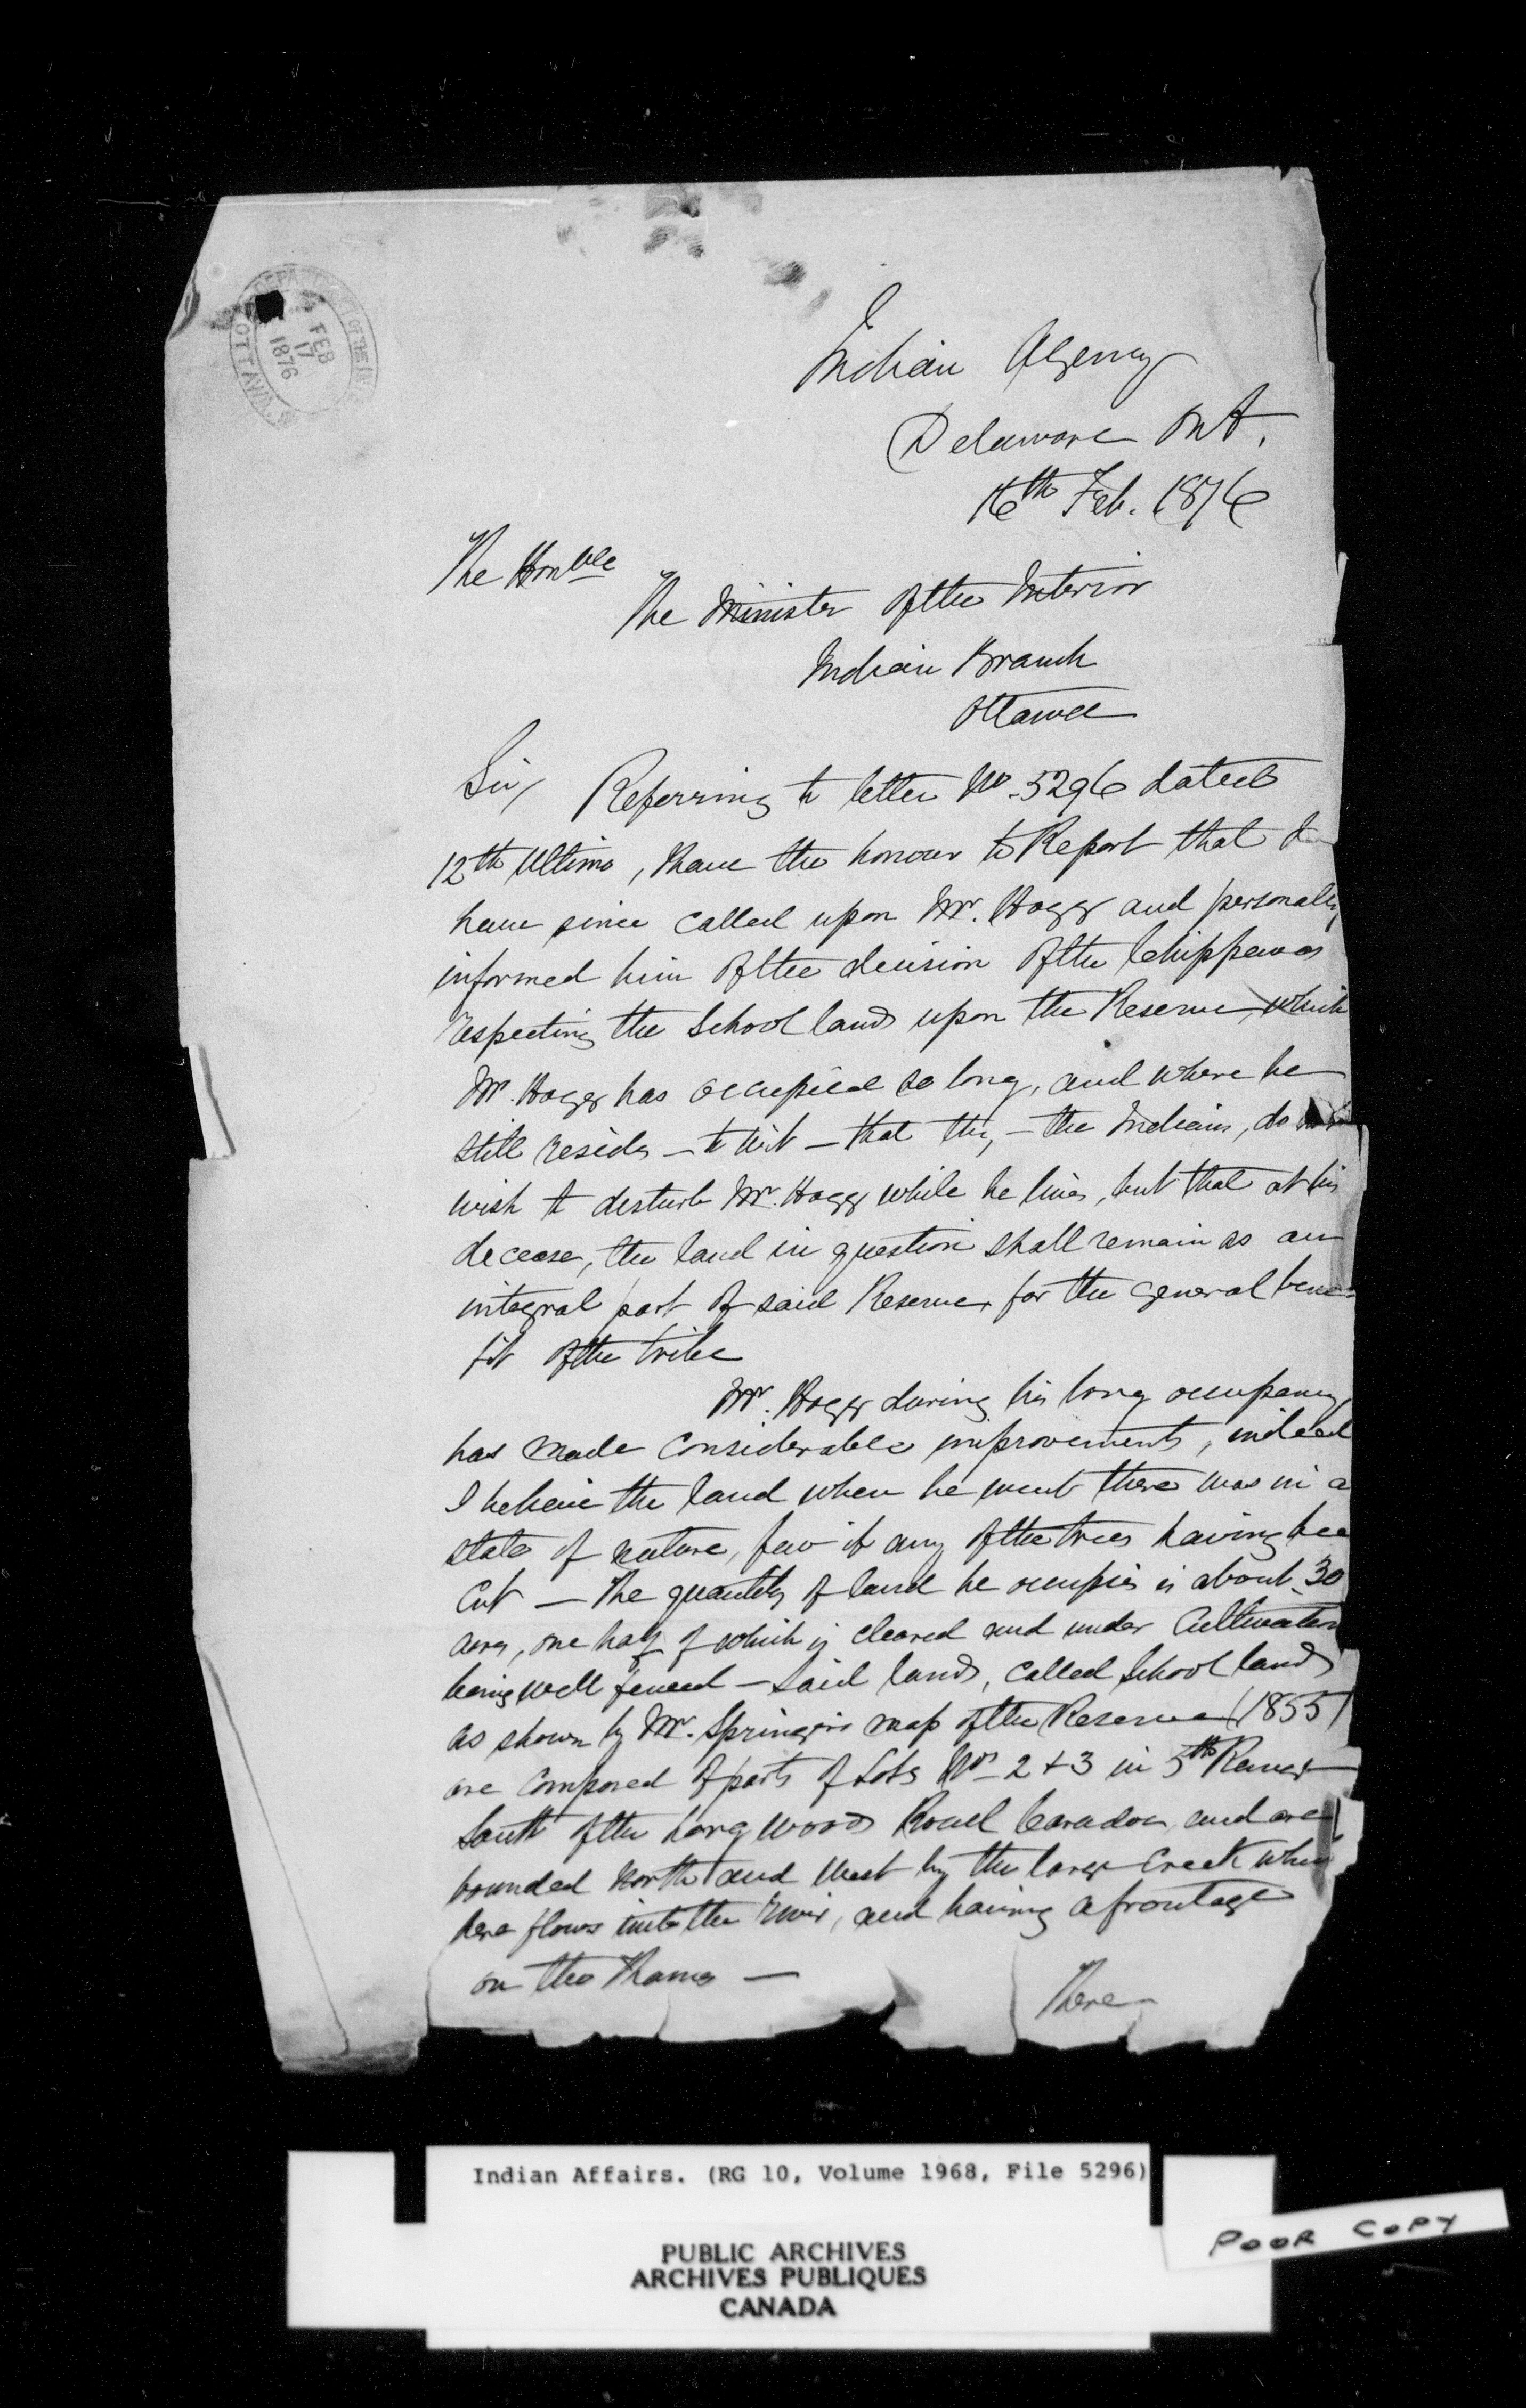 FEB
17
1876
OTTAWA
Indian Agency
Delaware Ont.
16th Feb. 1876
The Honble
The Minister of the Interior
Indian Branch
Ottawa
Sir, Referring to letter No. 5296 dated
12th Ultimo, I have the honour to Report that I
have since called upon Mr. Hogg and personally
informed him of the decision of the Chippewas
respecting the School lands upon the Reserve, which
Mr. Hogg has occupied so long, and where he
still resides — to wit — that they, — the Indians, do not
wish to disturb Mr. Hogg while he lives, but that at his
decease, the land in question shall remain as an
integral part of said Reserve, for the general bene-
fit of the tribe
Mr. Hogg during his long occupancy
has made considerable improvements, indeed
I believe the land when he went there was in a
state of nature, few if any of the trees having bee
cut — The quantity of land he occupies is about 30
acres, one half of which is cleared and under cultivation
being well fenced — Said lands, called School lands
as shown by Mr. Springer's map of the Reserve (1855)
are composed of parts of Lots Nos 2 + 3 in 5th Range
South of the Longwoods Road Caradoc, and are
bounded North and West by the large Creek which
here flows into the river, and having a frontage
on the Thames —
There
Indian Affairs. (RG 10, Volume 1968, File 5296)
PUBLIC ARCHIVES
ARCHIVES PUBLIQUES
CANADA
POOR COPY